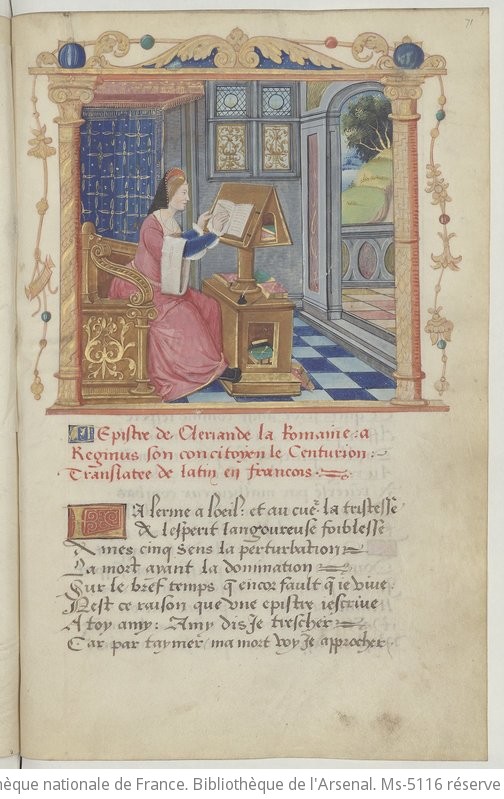 71
Epistre de Cleriande la Romaine: a
Reginus son concitoyen le Centurion:
Translatee de latin en francois
La lerme a loeil: et au cueur la tristesse
A lesperit langoureuse foiblesse
A mes cinq sens la perturbation
La mort ayant la domination
Sur le bref temps q encor fault q ie vive:
Nest ce raison que vne epistre iescriue
A toy amy: Amy dis Je trescher
Car par taymer ma mort voy Je approcher
hèque nationale de France. Bibliothèque de l'Arsenal. Ms-5116 réserve